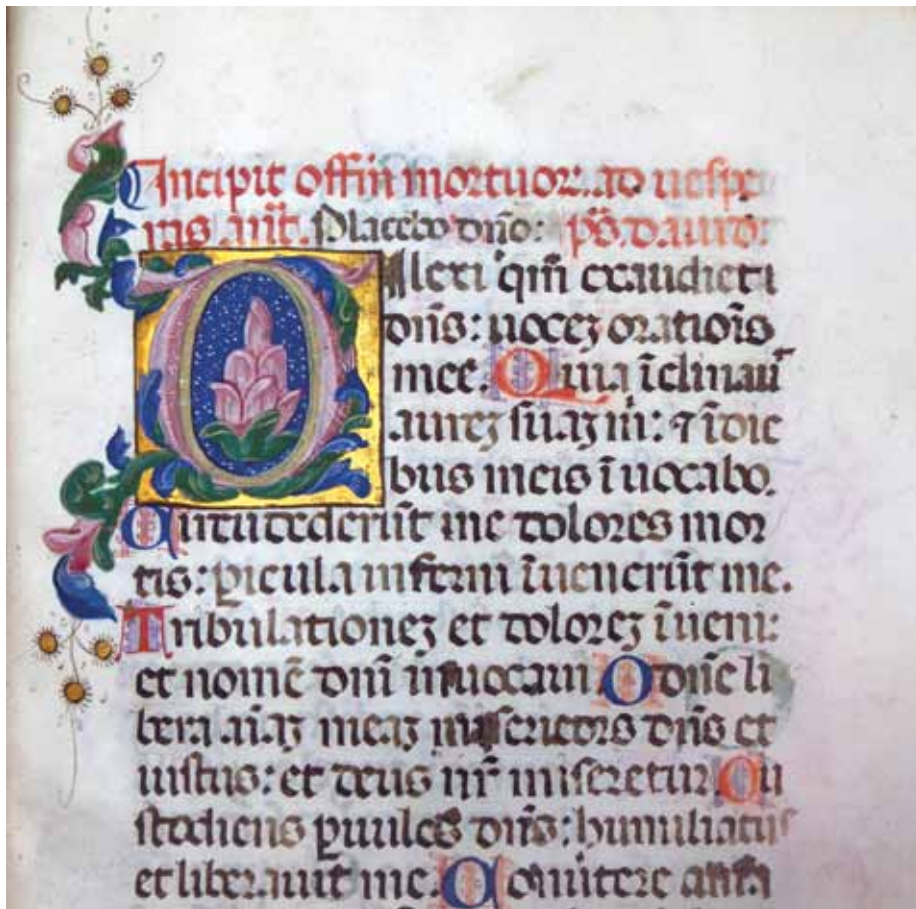 Incipit offiñ mortuor. ad uespe
ris. añt. Placebo dño: ps̄. dauid:
DIlexi qm̄ exaudiet
dñs: uoceʒ oratiōis
mee. Quia īclinau̅
aureʒ suaʒ m̄: ⁊ ī die
bus meis īuocabo.
Circūdederūt me dolores mor
tis: ꝑicula inferni īuenerūt me.
Tribulationeʒ et doloreʒ īueni:
et nomē dñi inuocaui O dñe li
bera aīaʒ meaʒ misericors dñs et
iustus: et deus nr̄ miseretur Cu
stodiens ꝑuulos dñs: humiliatus
et liberauit me. Conuertere